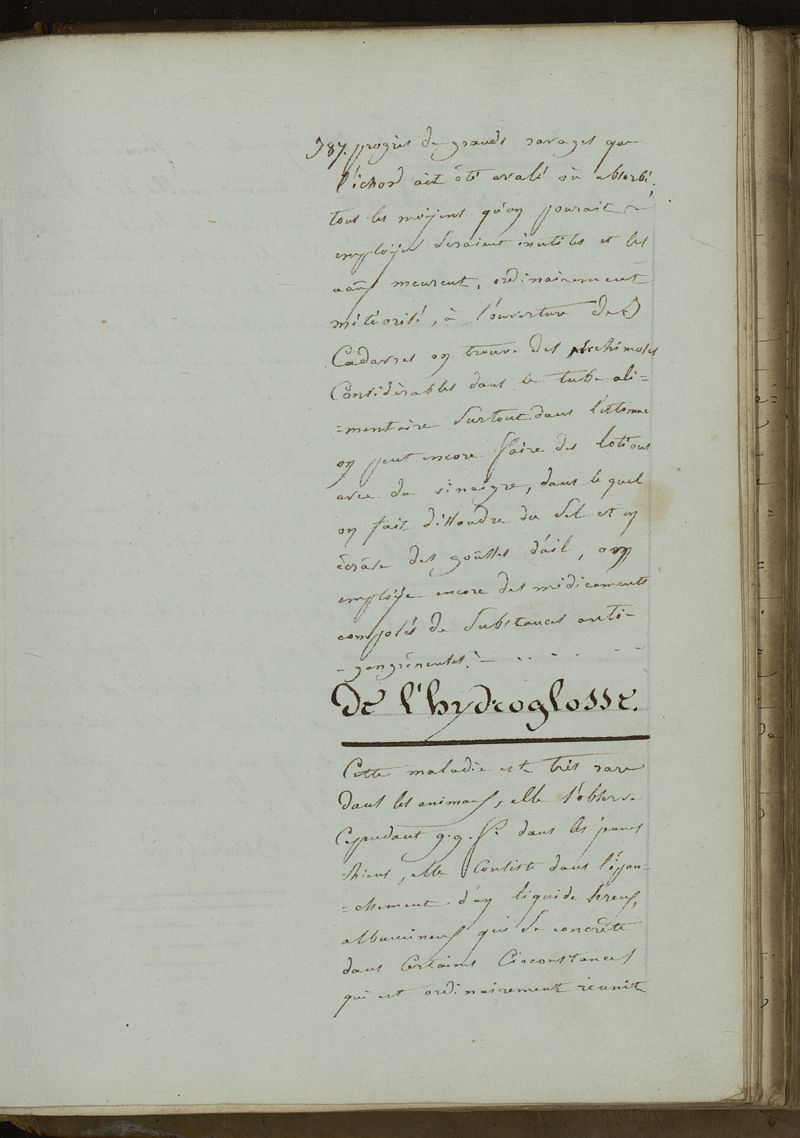 787. progrès de grands ravages que
l'ichord ait été avalé où absorbé,
tous les moyens qu'on pourait
employer seraient inutiles et les
aãux meurent, ordinairement
météorisé, à l'ouverture des
Cadavres on trouve des écchimoses
Considèrables dans le tube ali=
=mentaire surtout dans l'estomac
on peut encore faire des lotions
avec du vinaigre, dans le quel
on fait dissoudre du sel et on
écrase des goûsses d'ail, on
employe encore des médicaments
composés de substances anti-
-gangréneuses. - . . - . - -
De l'hydroglosse.
Cette maladie est très rare
dans les animaux, elle s'observe
Cependant q.q.fs. dans les jeunes
chiens, elle Consiste dans l'épan-
=chement d'un liquide séreux,
albumineux qui se concrète
dans Certaines Circonstances
qui est ordinairement réunit